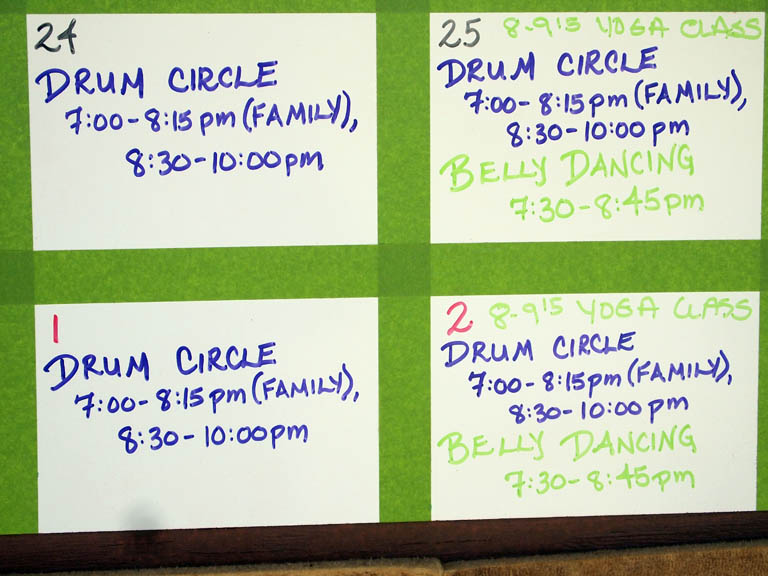 24
DRUM CIRCLE
7:00-8:15pm (FAMILY),
8:30-10:00pm
25 8-9:15 YOGA CLASS
DRUM CIRCLE
7:00-8:15pm (FAMILY),
8:30-10:00pm
BELLY DANCING
7:30-8:45pm
1
DRUM CIRCLE
7:00-8:15pm (FAMILY),
8:30-10:00pm
2 8-9:15 YOGA CLASS
DRUM CIRCLE
7:00-8:15pm (FAMILY),
8:30-10:00pm
BELLY DANCING
7:30-8:45pm